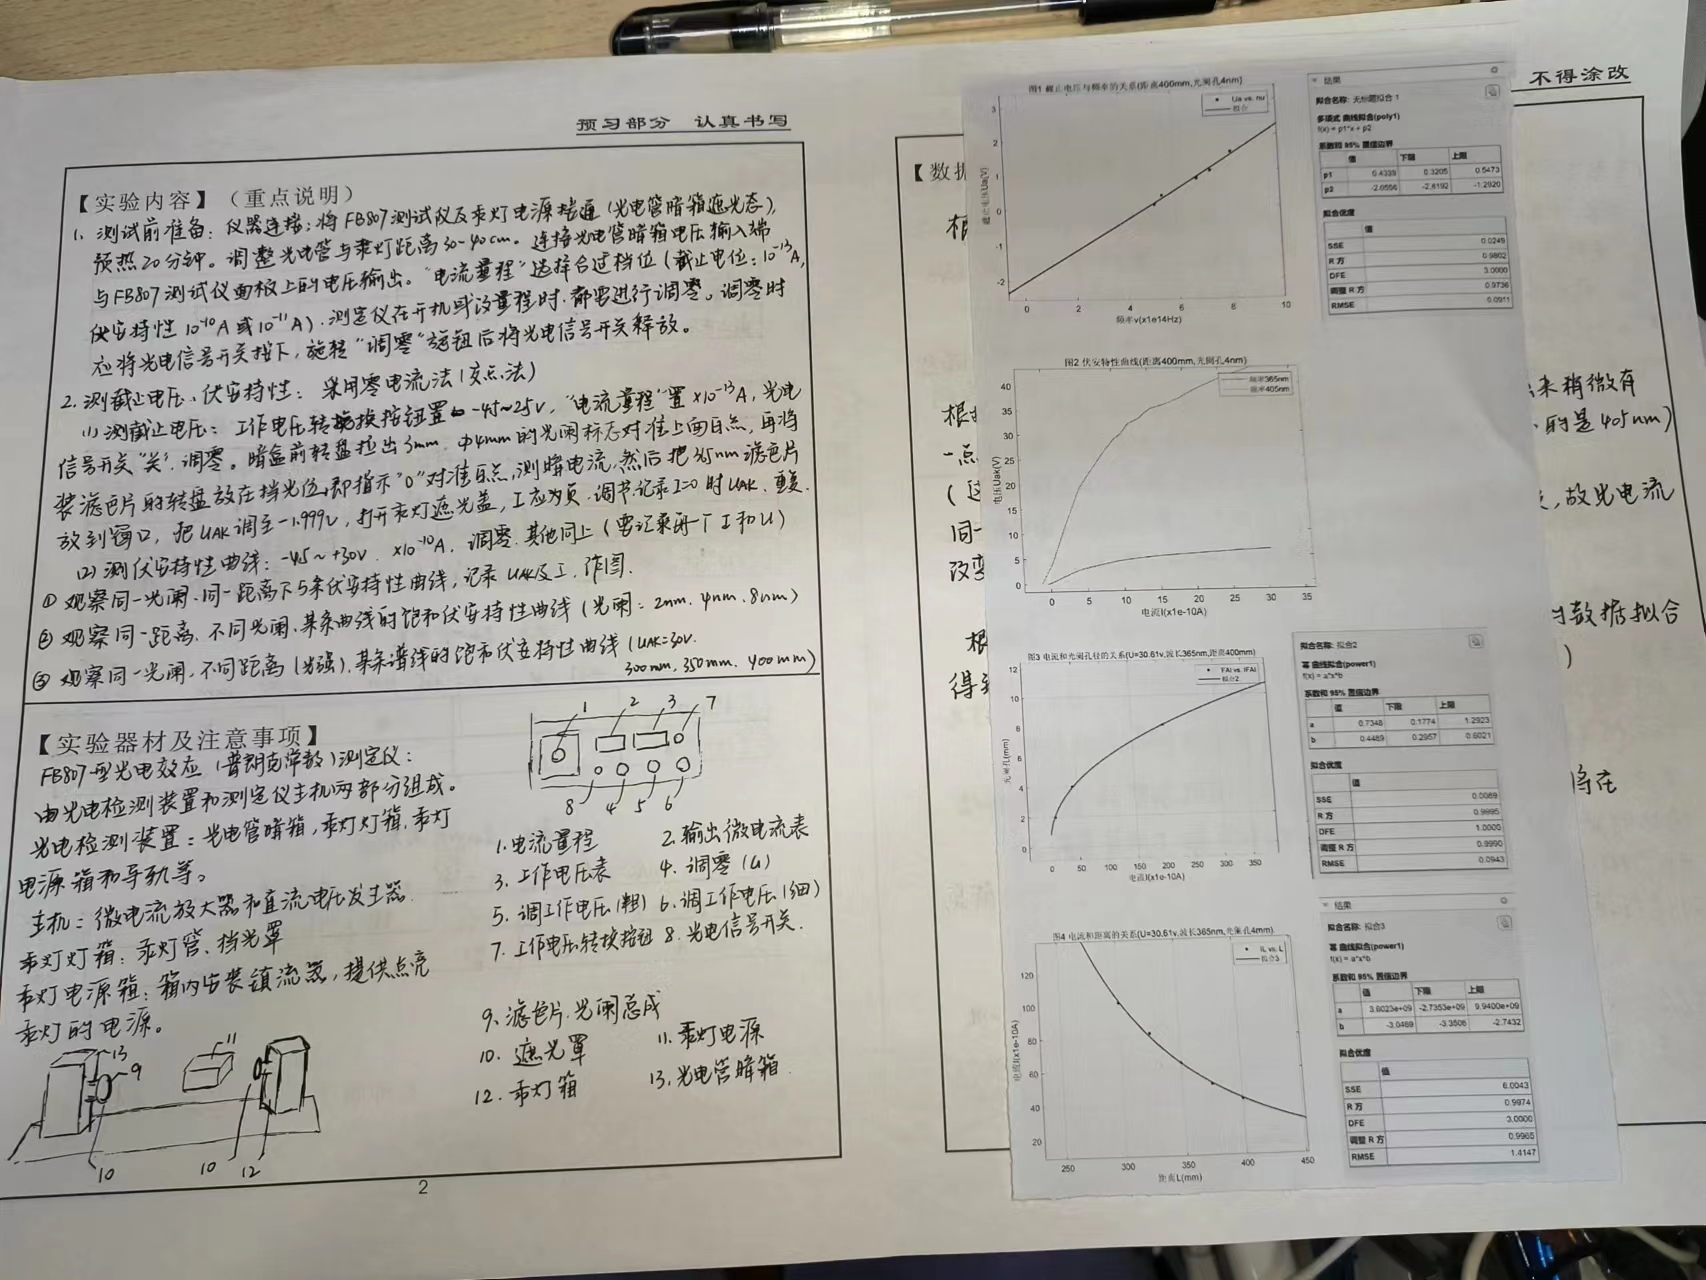 预习部分 认真书写
【实验内容】（重点说明）
1. 测试前准备：仪器连接：将FB807测试仪及汞灯电源接通（光电管暗箱遮光态），
预热20分钟。调整光电管与汞灯距离30~40cm。连接光电管暗箱电压输入端
与FB807测试仪面板上的电压输出。"电流量程"选择合适档位（截止电位：10⁻¹³A，
伏安特性10⁻¹⁰A或10⁻¹¹A）.测定仪在开机或改量程时.都需进行调零。调零时
应将光电信号开关按下，旋转"调零"旋钮后将光电信号开关释放。
2. 测截止电压、伏安特性：采用零电流法（交点法）
(1)测截止电压：工作电压转换按钮置 -4.5~2.5V，"电流量程"置×10⁻¹³A，光电
信号开关"关".调零。暗盒前转盘拉出3mm，Φ4mm的光阑标志对准上面白点，再将
装滤色片的转盘放在挡光位,即指示"0"对准白点,测暗电流,然后把365nm滤色片
放到窗口，把UAK调至-1.999V，打开汞灯遮光盖，I应为负.调节.记录I=0时UAK.重复.
(2)测伏安特性曲线：-4.5~+30V. ×10⁻¹⁰A. 调零.其他同上（要记录每一个I和U）
① 观察同一光阑.同一距离下5条伏安特性曲线，记录UAK及I，作图.
② 观察同一距离、不同光阑.某条曲线的饱和伏安特性曲线（光阑：2nm.4nm.8nm）
③ 观察同一光阑,不同距离（光强）.某条谱线的饱和伏安特性曲线（UAK=30V.
300mm, 350mm. 400mm）
【实验器材及注意事项】
FB807型光电效应（普朗克常数）测定仪：
由光电检测装置和测定仪主机两部分组成。
光电检测装置：光电管暗箱,汞灯灯箱,汞灯
电源箱和导轨等。
主机：微电流放大器和直流电压发生器.
汞灯灯箱：汞灯管、挡光罩
汞灯电源箱：箱内安装镇流器，提供点亮
汞灯的电源。
1 2 3 7
8 4 5 6
1.电流量程 2.输出微电流表
3. 工作电压表 4. 调零（U）
5. 调工作电压（粗） 6.调工作电压（细）
7. 工作电压转换按钮 8.光电信号开关.
9.滤色片.光阑总成
10. 遮光罩 11.汞灯电源
12. 汞灯箱 13.光电管暗箱.
13 9 11
10 10 12
2
不得涂改
【数据
根
来稍微有
根据
的是405nm）
一点
，故光电流
同一
改变
根
的数据拟合
得到
）
图1 截止电压与频率的关系(距离400mm,光阑孔4nm)
Ua vs. nu
拟合
3
2
1
0
-1
-2
0 2 4 6 8 10
频率v(x1e14Hz)
截止电压Ua(V)
结果
拟合名称: 无标题拟合 1
多项式 曲线拟合(poly1)
f(x) = p1*x + p2
系数和 95% 置信边界
值 下限 上限
p1 0.4339 0.3205 0.5473
p2 -2.0556 -2.8192 -1.2920
拟合优度
值
SSE 0.0249
R 方 0.9802
DFE 3.0000
调整 R 方 0.9736
RMSE 0.0911
图2 伏安特性曲线(距离400mm,光阑孔4nm)
频率365nm
频率405nm
40
35
30
25
20
15
10
5
0
0 5 10 15 20 25 30 35
电流I(x1e-10A)
电压Uak(V)
图3 电流和光阑孔径的关系(U=30.61v,波长365nm,距离400mm)
FAI vs. IFAI
拟合2
12
10
8
6
4
2
0
0 50 100 150 200 250 300 350
电流I(x1e-10A)
光阑孔(mm)
拟合名称: 拟合2
幂 曲线拟合(power1)
f(x) = a*x^b
系数和 95% 置信边界
值 下限 上限
a 0.7348 0.1774 1.2923
b 0.4489 0.2957 0.6021
拟合优度
值
SSE 0.0089
R 方 0.9995
DFE 1.0000
调整 R 方 0.9990
RMSE 0.0943
图4 电流和距离的关系(U=30.61v,波长365nm,光阑孔4mm)
IL vs. L
拟合3
120
100
80
60
40
20
250 300 350 400 450
距离L(mm)
电流I(x1e-10A)
结果
拟合名称: 拟合3
幂 曲线拟合(power1)
f(x) = a*x^b
系数和 95% 置信边界
值 下限 上限
a 3.6023e+09 -2.7353e+09 9.9400e+09
b -3.0469 -3.3506 -2.7432
拟合优度
值
SSE 6.0043
R 方 0.9974
DFE 3.0000
调整 R 方 0.9965
RMSE 1.4147